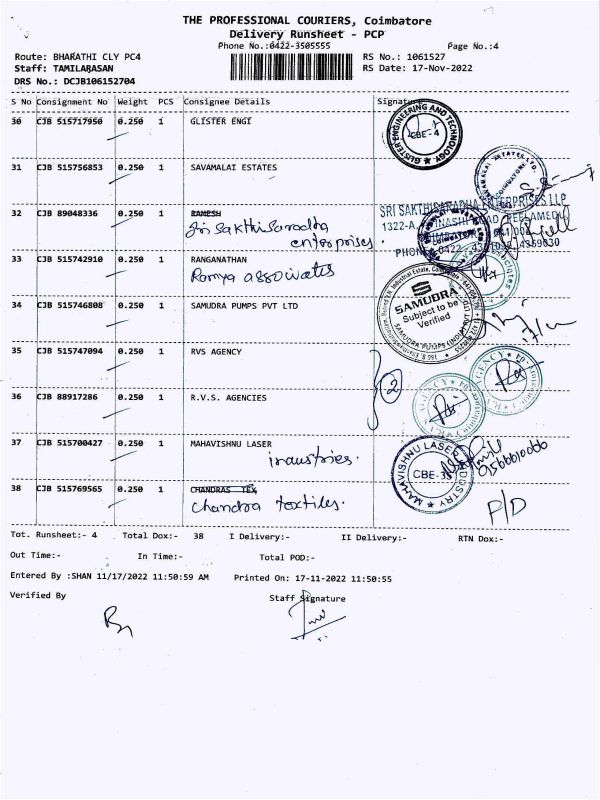 THE PROFESSIONAL COURIERS, Coimbatore
Delivery Runsheet - PCP
Phone No.:0422-3505555
Page No.:4
Route: BHARATHI CLY PC4
RS No.: 1061527
Staff: TAMILARASAN
RS Date: 17-Nov-2022
DRS No.: DCJB106152704
S No Consignment No Weight PCS Consignee Details Signature
30 CJB 515717950 0.250 1 GLISTER ENGI
GLISTER ENGINEERING AND TECHNOLOGY
CBE-4
31 CJB 515756853 0.250 1 SAVAMALAI ESTATES
COIMBATORE
32 CJB 89048336 0.250 1 RAMESH
Sri Sakthi Saradha
enterprises.
SRI SAKTHISARADHA ENTERPRISES LLP
1322-A,
33 CJB 515742910 0.250 1 RANGANATHAN
Ramya associates
34 CJB 515746808 0.250 1 SAMUDRA PUMPS PVT LTD
SAMUDRA
Subject to be
Verified
35 CJB 515747094 0.250 1 RVS AGENCY
2
36 CJB 88917286 0.250 1 R.V.S. AGENCIES
37 CJB 515700427 0.250 1 MAHAVISHNU LASER
industries.
MAHAVISHNU LASER INDUSTRY
38 CJB 515769565 0.250 1 CHANDRAS TEX
Chandra textiles.
P/D
Tot. Runsheet:- 4 Total Dox:- 38 I Delivery:- II Delivery:- RTN Dox:-
Out Time:- In Time:- Total POD:-
Entered By :SHAN 11/17/2022 11:50:59 AM Printed On: 17-11-2022 11:50:55
Verified By Staff Signature